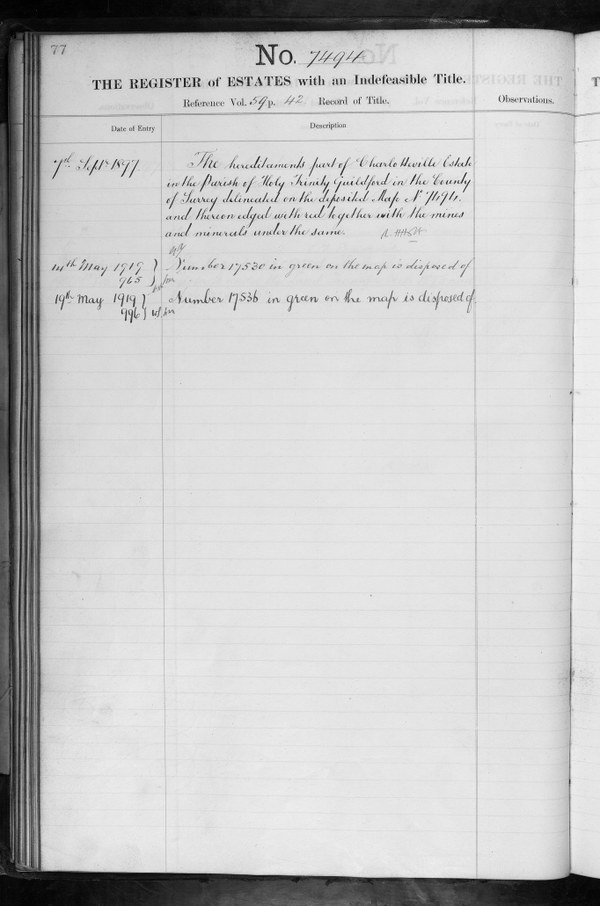 77
No. 7494
THE REGISTER of ESTATES with an Indefeasible Title.
Reference Vol. 59 p. 42 Record of Title.
Observations.
Date of Entry
Description
7th Septr 1897
The hereditaments part of Charlotteville Estate
in the Parish of Holy Trinity Guildford in the County
of Surrey delineated on the deposited Map No 7494
and thereon edged with red together with the mines
and minerals under the same.
14th May 1919
965
Number 17530 in green on the map is disposed of
19th May 1919
996
Number 17536 in green on the map is disposed of